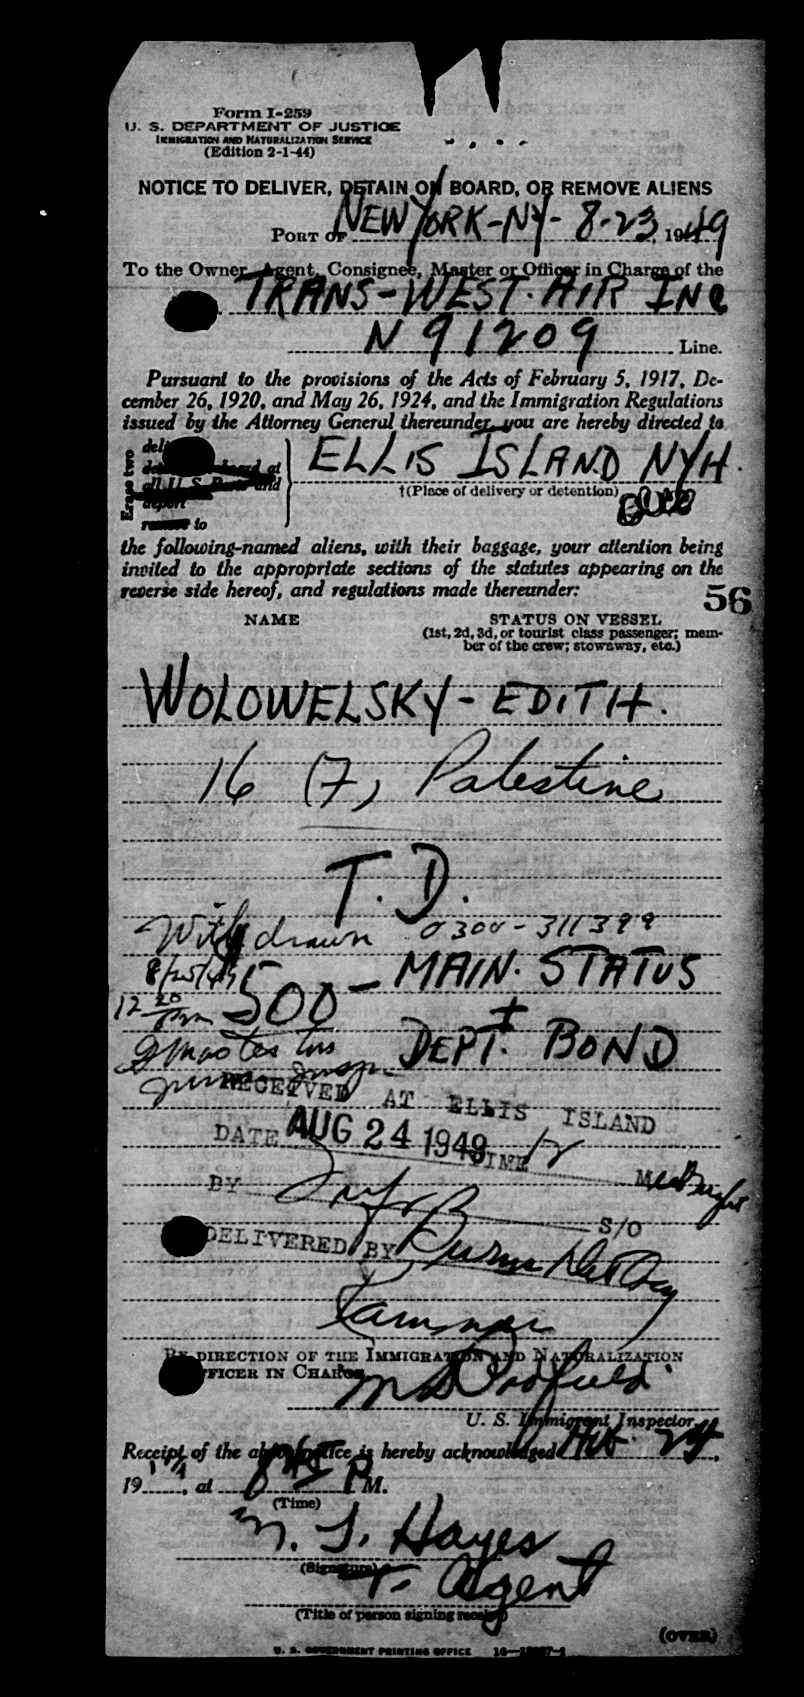 Form I-259
U. S. DEPARTMENT OF JUSTICE
IMMIGRATION AND NATURALIZATION SERVICE
(Edition 2-1-44)
NOTICE TO DELIVER, DETAIN ON BOARD, OR REMOVE ALIENS
PORT OF NEW YORK-NY- 8-23, 1949
To the Owner, Agent, Consignee, Master or Officer in Charge of the
TRANS-WEST. AIR INC
N 91209 Line.
Pursuant to the provisions of the Acts of February 5, 1917, De-
cember 26, 1920, and May 26, 1924, and the Immigration Regulations
issued by the Attorney General thereunder, you are hereby directed to
Erase two
deli
board at
all U. S. Ports and
deport
remove to
ELLIS ISLAND NYH.
†(Place of delivery or detention)
the following-named aliens, with their baggage, your attention being
invited to the appropriate sections of the statutes appearing on the
reverse side hereof, and regulations made thereunder:
56
NAME
STATUS ON VESSEL
(1st, 2d, 3d, or tourist class passenger; mem-
ber of the crew; stowaway, etc.)
WOLOWELSKY - EDITH.
16 (7) Palestine
T. D.
Withdrawn 0300-311399
8/25/49
500 - MAIN. STATUS
+
DEPT. BOND
12 20
RECEIVED AT ELLIS ISLAND
DATE AUG 24 1949 TIME 12 M
BY S/O
DELIVERED BY
BY DIRECTION OF THE IMMIGRATION AND NATURALIZATION
OFFICER IN CHARGE
U. S. Immigrant Inspector.
Receipt of the above notice is hereby acknowledged
19 , at 8 45 P M.
(Time)
M. J. Hayes
(Signature)
Agent
(Title of person signing receipt)
(OVER)
U. S. GOVERNMENT PRINTING OFFICE